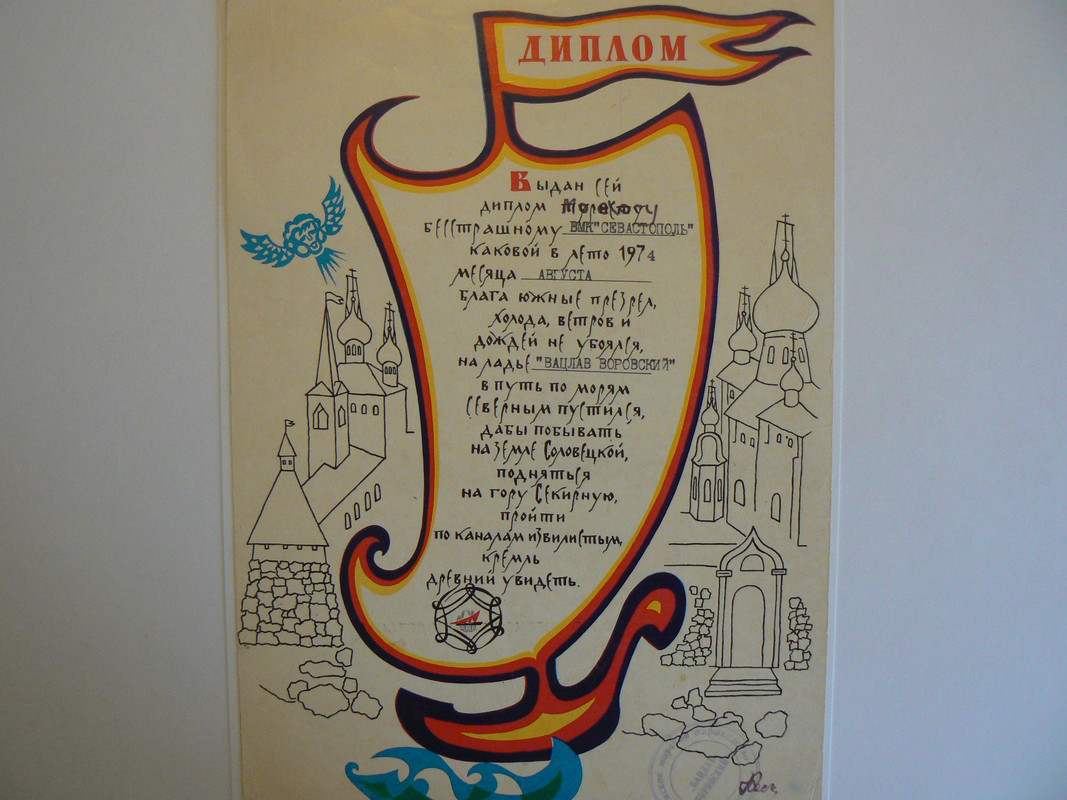 ДИПЛОМ
Выдан сей
диплом мореходу
бесстрашному ВМК"СЕВАСТОПОЛЬ"
каковой в лето 1974
месяца АВГУСТА
блага южные презрел,
холода, ветров и
дождей не убоялся,
на ладье "ВАЦЛАВ ВОРОВСКИЙ"
в путь по морям
северным пустился,
дабы побывать
на земле Соловецкой,
подняться
на гору Секирную,
пройти
по каналам извилистым,
кремль
древний увидеть.